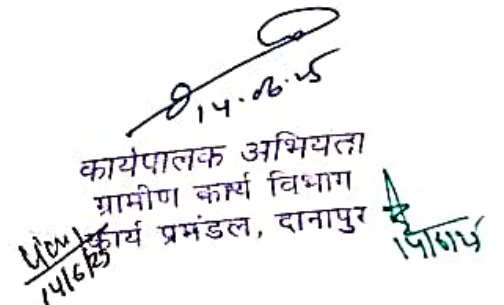 14.06.25
कार्यपालक अभियंता
ग्रामीण कार्य विभाग
कार्य प्रमंडल, दानापुर
14/6/25
14/6/25